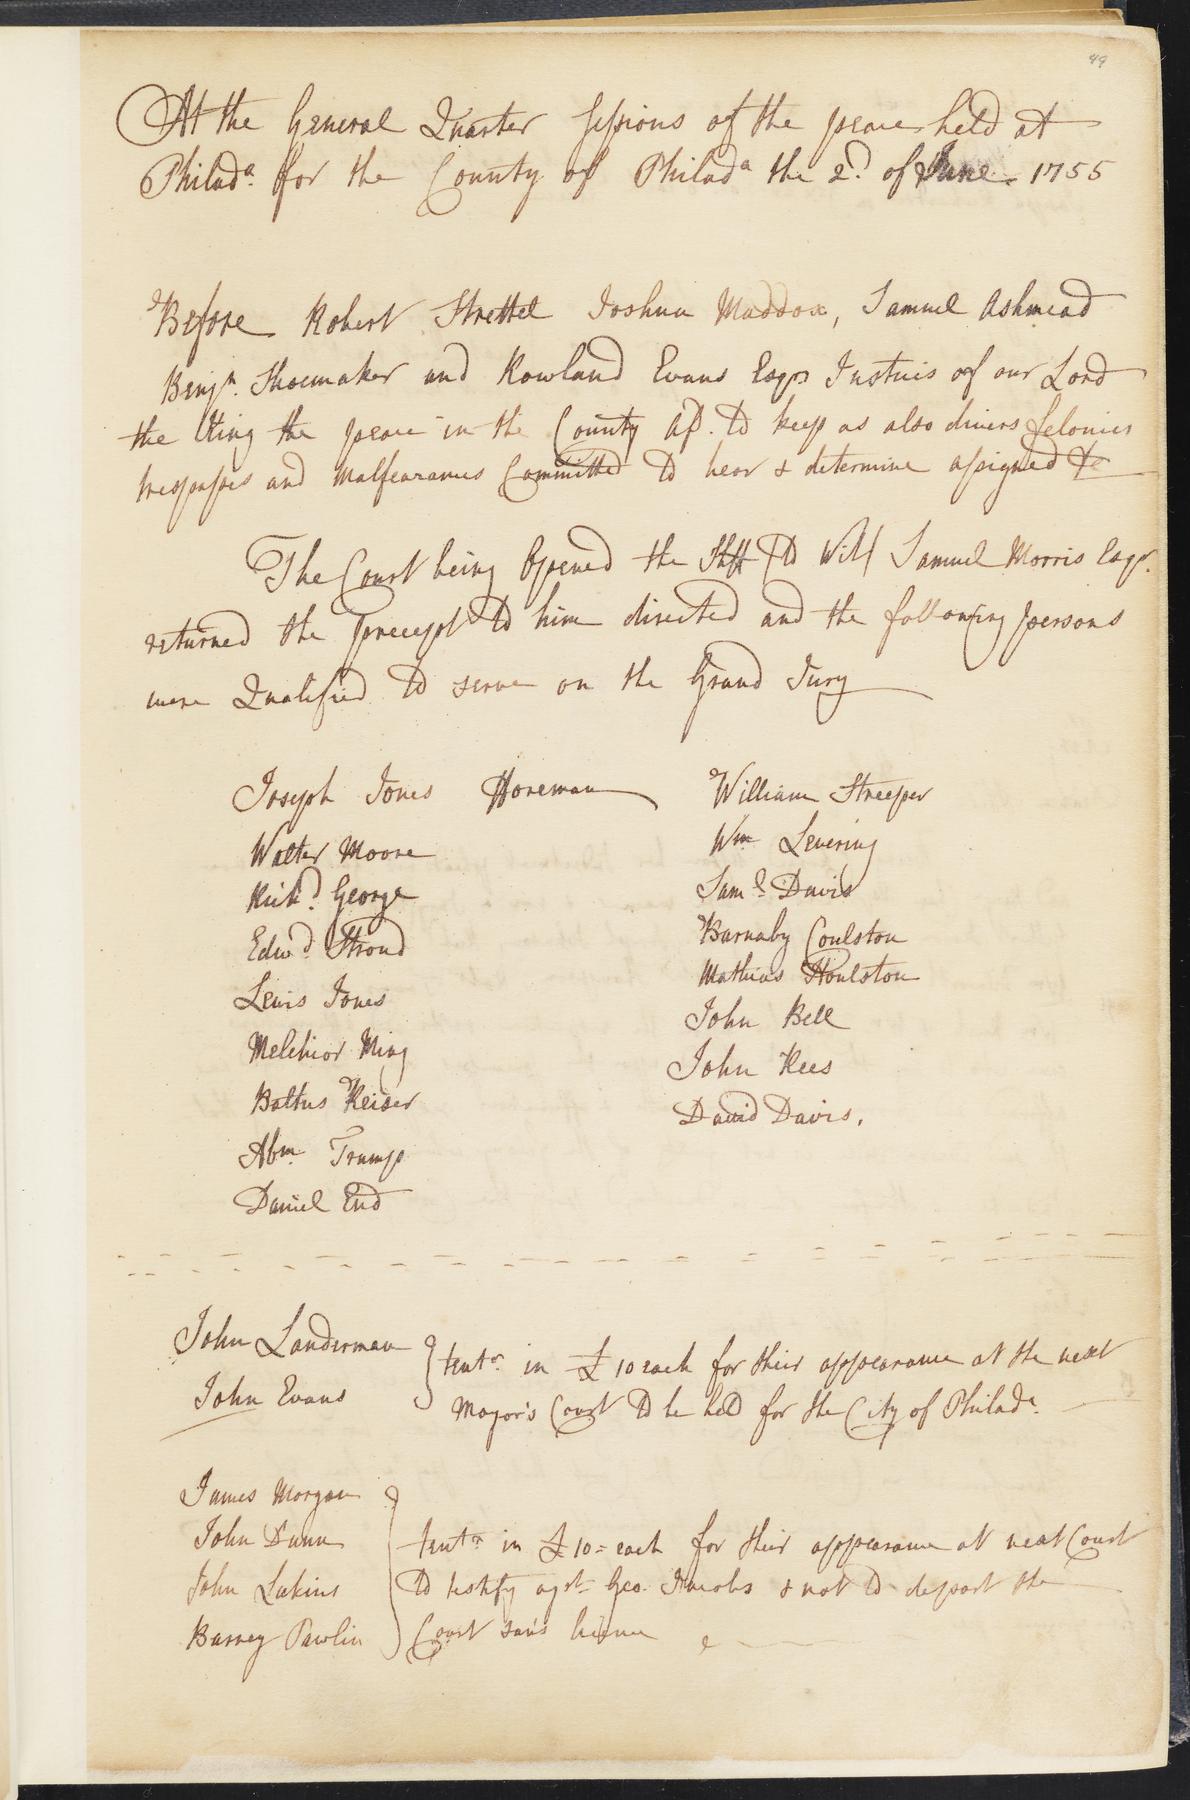 49
At the General Quarter Sessions of the peace held at
Philad.a for the County of Philada the 2.d of June 1755
Before Robert Strettel Joshua Maddox, Samuel Ashmead
Benj.n Shoemaker and Rowland Evans Esqrs Justices of our Lord
the King the peace in the County afd. to keep as also divers felonies
trespasses and Malfeazances Committed to hear & determine assigned &c
The Court being Opened the Shff to Wit Samuel Morris Esqr.
returned the precept to him directed and the following persons
were Qualified to serve on the Grand Jury
Joseph Jones Foreman
Walter Moore
Rich.d George
Edw.d Stroud
Lewis Jones
Melchior Ming
Baltus Reiser
Abm. Trump
Daniel End
William Streeper
Wm. Levering
Sam.l Davis
Barnaby Coulston
Mathias Houlston
John Bell
John Rees
David Davis.
John Landerman
John Evans
tentr. in £10 each for their appearance at the next
Mayor's Court to be held for the City of Philada.
James Morgan
John Dunn
John Lukins
Barney Pawlin
tentr. in £10= each for their appearance at next Court
to testify agst. Geo. Jacobs & not to depart the
Court sans license